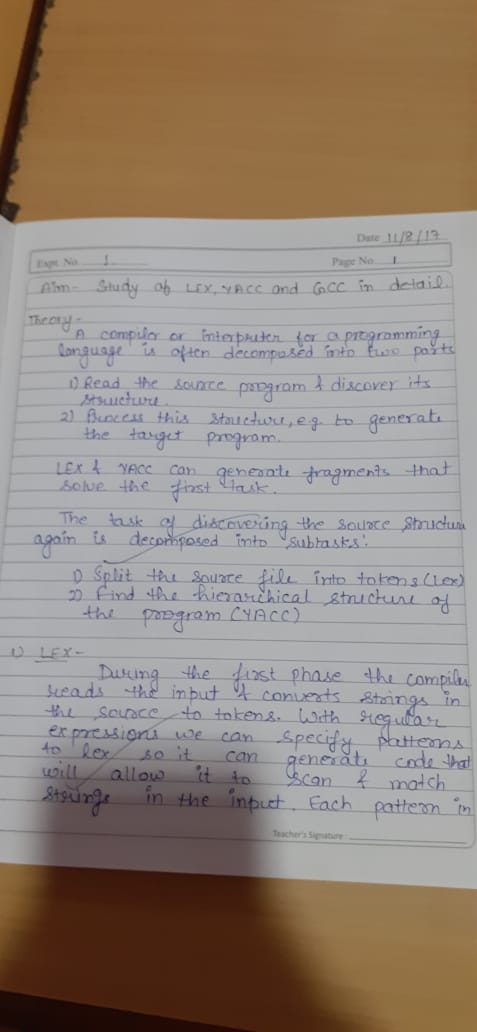 Date 11/8/17
Expt. No. 1
Page No. 1
Aim- Study of LEX, YACC and GCC in detail.
Theory-
A compiler or interpreter for a programming
language is often decomposed into two parts
1) Read the source program & discover its
structure.
2) Process this structure, e.g. to generate
the target program.
LEX & YACC can generate fragments that
solve the first task.
The task of discovering the source structure
again is decomposed into subtasks:
1) Split the source file into tokens (Lex)
2) Find the hierarchical structure of
the program (YACC)
1) LEX-
During the first phase the compiler
reads the input & converts strings in
the source to tokens. With regular
expressions we can specify patterns
to lex so it can generate code that
will allow it to scan & match
strings in the input. Each pattern in
Teacher's Signature :